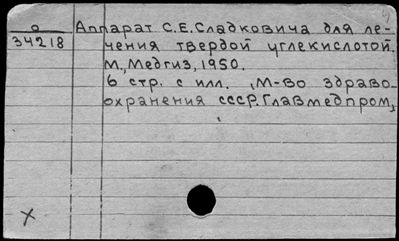 о Аппарат С.Е.Сладковича для ле-
34218 чения твердой углекислотой.
М., Медгиз, 1950.
6 стр. с илл. , М-во здраво-
охранения СССР. Главмедпром,